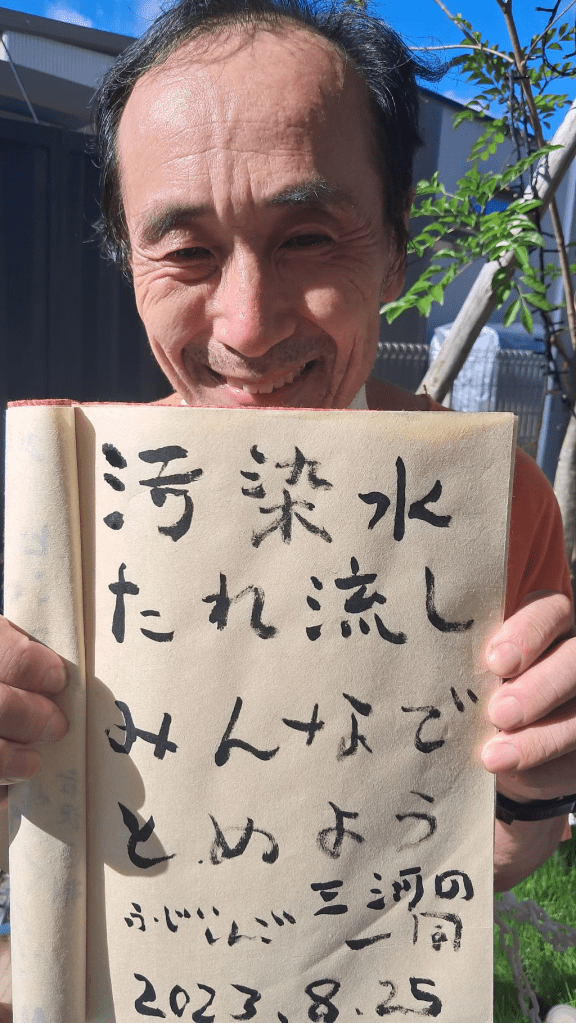 汚染水
たれ流し
みんなで
とめよう
三河の
一同
ふじいしんご
2023.8.25